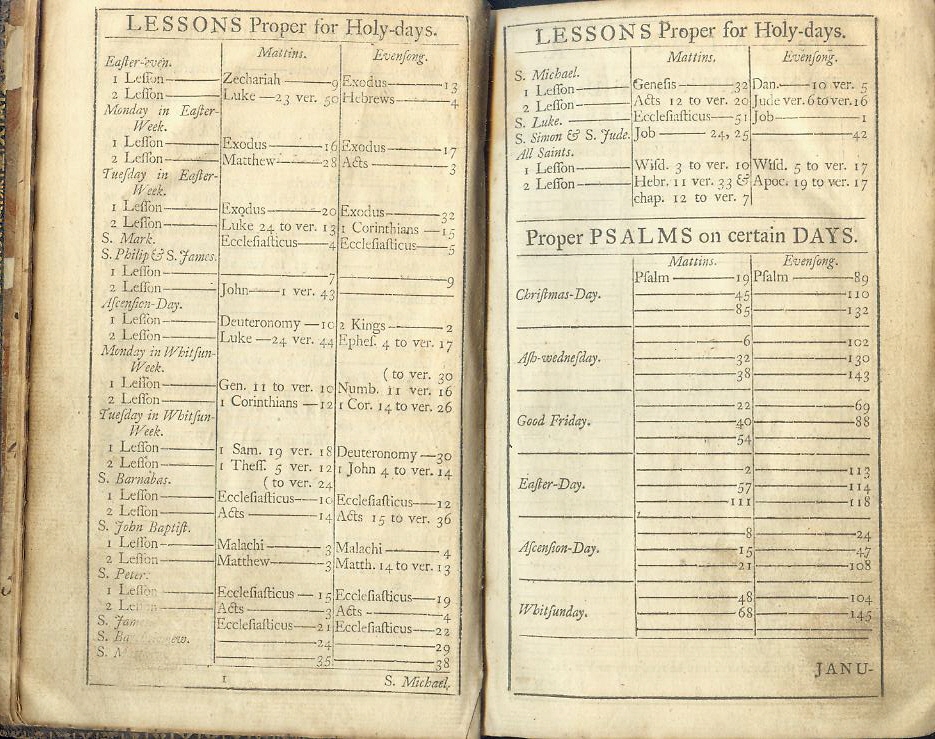 LESSONS Proper for Holy-days.
Mattins. Evenſong.
Eaſter-even.
1 Leſſon Zechariah 9 Exodus 13
2 Leſſon Luke 23 ver. 50 Hebrews 4
Monday in Eaſter-
Week.
1 Leſſon Exodus 16 Exodus 17
2 Leſſon Matthew 28 Acts 3
Tueſday in Eaſter-
Week.
1 Leſſon Exodus 20 Exodus 32
2 Leſſon Luke 24 to ver. 13 1 Corinthians 15
S. Mark. Eccleſiaſticus 4 Eccleſiaſticus 5
S. Philip & S. James.
1 Leſſon 7 9
2 Leſſon John 1 ver. 43
Aſcenſion-Day.
1 Leſſon Deuteronomy 10 2 Kings 2
2 Leſſon Luke 24 ver. 44 Epheſ. 4 to ver. 17
Monday in Whitſun-
Week. (to ver. 30
1 Leſſon Gen. 11 to ver. 10 Numb. 11 ver. 16
2 Leſſon 1 Corinthians 12 1 Cor. 14 to ver. 26
Tueſday in Whitſun-
Week.
1 Leſſon 1 Sam. 19 ver. 18 Deuteronomy 30
2 Leſſon 1 Theſſ. 5 ver. 12 1 John 4 to ver. 14
S. Barnabas. (to ver. 24
1 Leſſon Eccleſiaſticus 10 Eccleſiaſticus 12
2 Leſſon Acts 14 Acts 15 to ver. 36
S. John Baptiſt.
1 Leſſon Malachi 3 Malachi 4
2 Leſſon Matthew 3 Matth. 14 to ver. 13
S. Peter.
1 Leſſon Eccleſiaſticus 15 Eccleſiaſticus 19
2 Acts 3 Acts 4
S. Eccleſiaſticus 21 Eccleſiaſticus 22
S. 24 29
S. 35 38
1 S. Michael.
LESSONS Proper for Holy-days.
Mattins. Evenſong.
S. Michael.
1 Leſſon Geneſis 32 Dan. 10 ver. 5
2 Leſſon Acts 12 to ver. 20 Jude ver. 6 to ver. 16
S. Luke. Eccleſiaſticus 51 Job 1
S. Simon & S. Jude. Job 24, 25 42
All Saints.
1 Leſſon Wiſd. 3 to ver. 10 Wiſd. 5 to ver. 17
2 Leſſon Hebr. 11 ver. 33 & Apoc. 19 to ver. 17
chap. 12 to ver. 7
Proper PSALMS on certain DAYS.
Mattins. Evenſong.
Pſalm 19 Pſalm 89
Chriſtmas-Day. 45 110
85 132
6 102
Aſh-wedneſday. 32 130
38 143
22 69
Good Friday. 40 88
54
2 113
Eaſter-Day. 57 114
111 118
8 24
Aſcenſion-Day. 15 47
21 108
48 104
Whitſunday. 68 145
JANU-